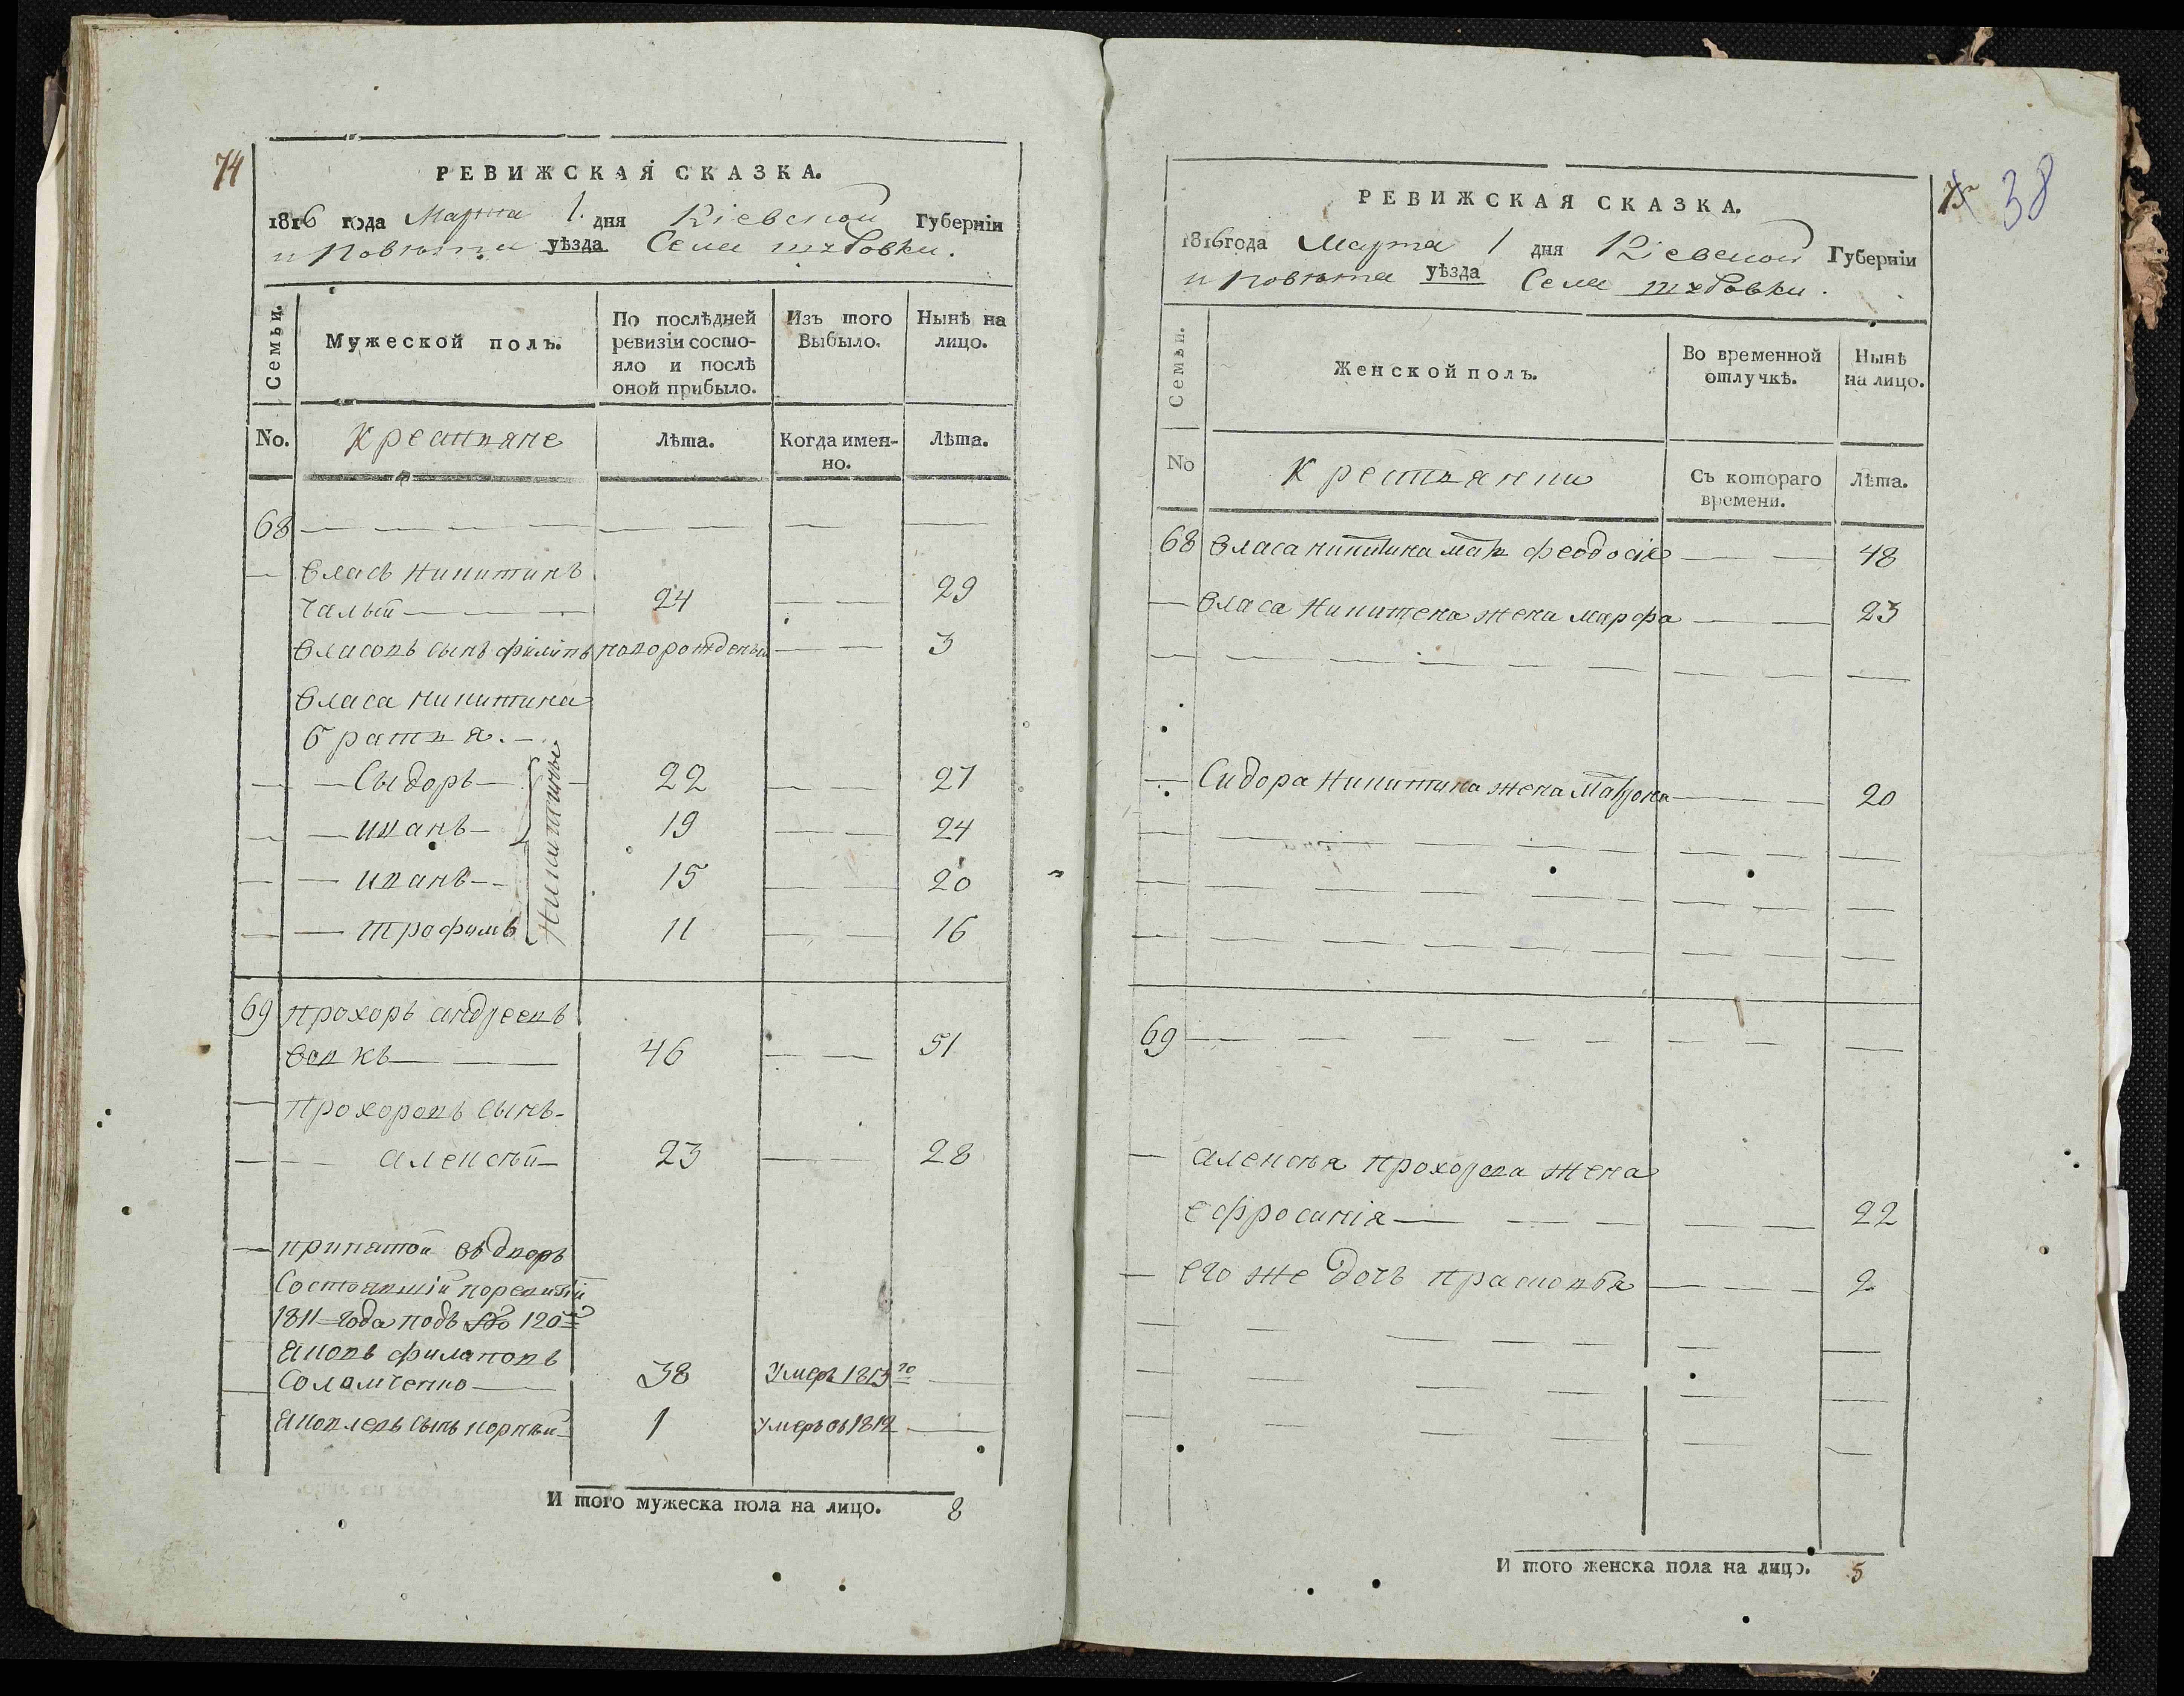 74
РЕВИЖСКАЯ СКАЗКА.
1816 года Марта 1. дня Кіевской Губерніи
и Повѣта уѣзда Села
Семьи.
Мужеской полъ.
По послѣдней ревизіи состояло и послѣ оной прибыло.
Изъ того Выбыло.
Нынѣ на лицо.
No.
Крестьяне
Лѣта.
Когда именно.
Лѣта.
68
Власъ Никитинъ
Чалый 24 29
Власовъ сынъ Филипъ новорожденъ 3
Власа Никитина
братья.
Сыдоръ 22 27
Иванъ 19 24
Иванъ 15 20
Трофимъ 11 16
Никитины
69 Прохоръ Андреевъ
Вовкъ 46 51
Прохоровъ сынъ
Алексѣй 23 28
принятой въ дворъ
Состоявшій поревизіи
1811 года подъ № 120
Яковъ Филатовъ
38 Умеръ 1813го
Яковлевъ сынъ Корнѣй 1 Умеръ въ 1812
И того мужеска пола на лицо. 8
75 38
РЕВИЖСКАЯ СКАЗКА.
1816 года Марта 1 дня Кіевской Губерніи
и Повѣта уѣзда Села
Семьи.
Женской полъ.
Во временной отлучкѣ.
Нынѣ на лицо.
No
Крестьянки
Съ котораго времени.
Лѣта.
68 Власа Никитина мать Феодосія 48
Власа Никитена жена Марфа 23
Сидора Никитина жена Матрона 20
69
Алексѣя Прохорова жена
Ефросинія 22
его же дочъ Прасковья 2
И того женска пола на лицо. 5